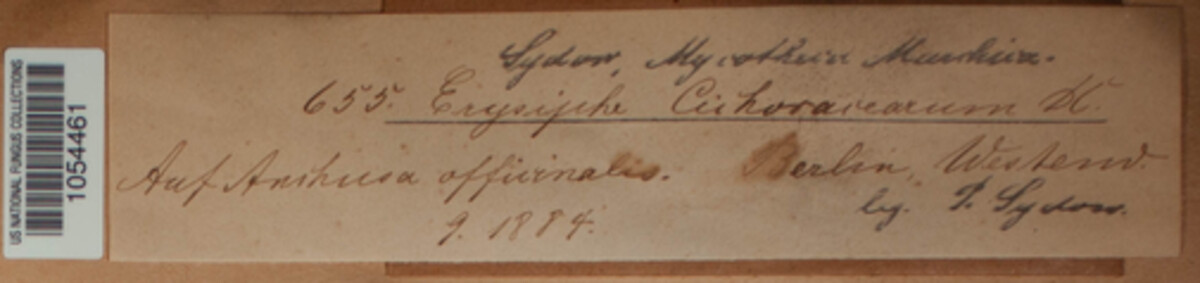 US NATIONAL FUNGUS COLLECTIONS
1054461
Sydow, Mycotheca Marchica.
655. Erysiphe Cichoracearum DC.
Auf Anchusa officinalis. Berlin, Westend.
9. 1884. leg. P. Sydow.